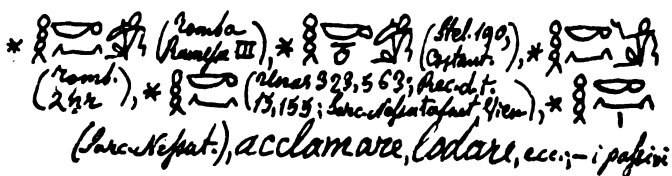 * 𓎛𓎡𓈖 (tomba Ramesse III), * 𓎛𓎡𓏌 (Stel. 190, Costant.), * 𓎛𓎡𓈖
(tomb. ), * 𓎛𓎡𓈖 (Unas 323, 563; Rec. d. t. 15, 155; Sarc. Nessatafnut, Vien.), * 𓎛𓎡𓈖𓏤
(Sarc. Nessat.), acclamare, lodare, ecc.; – i passivi